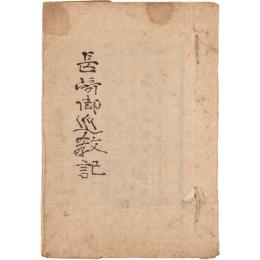 長崎御巡教記